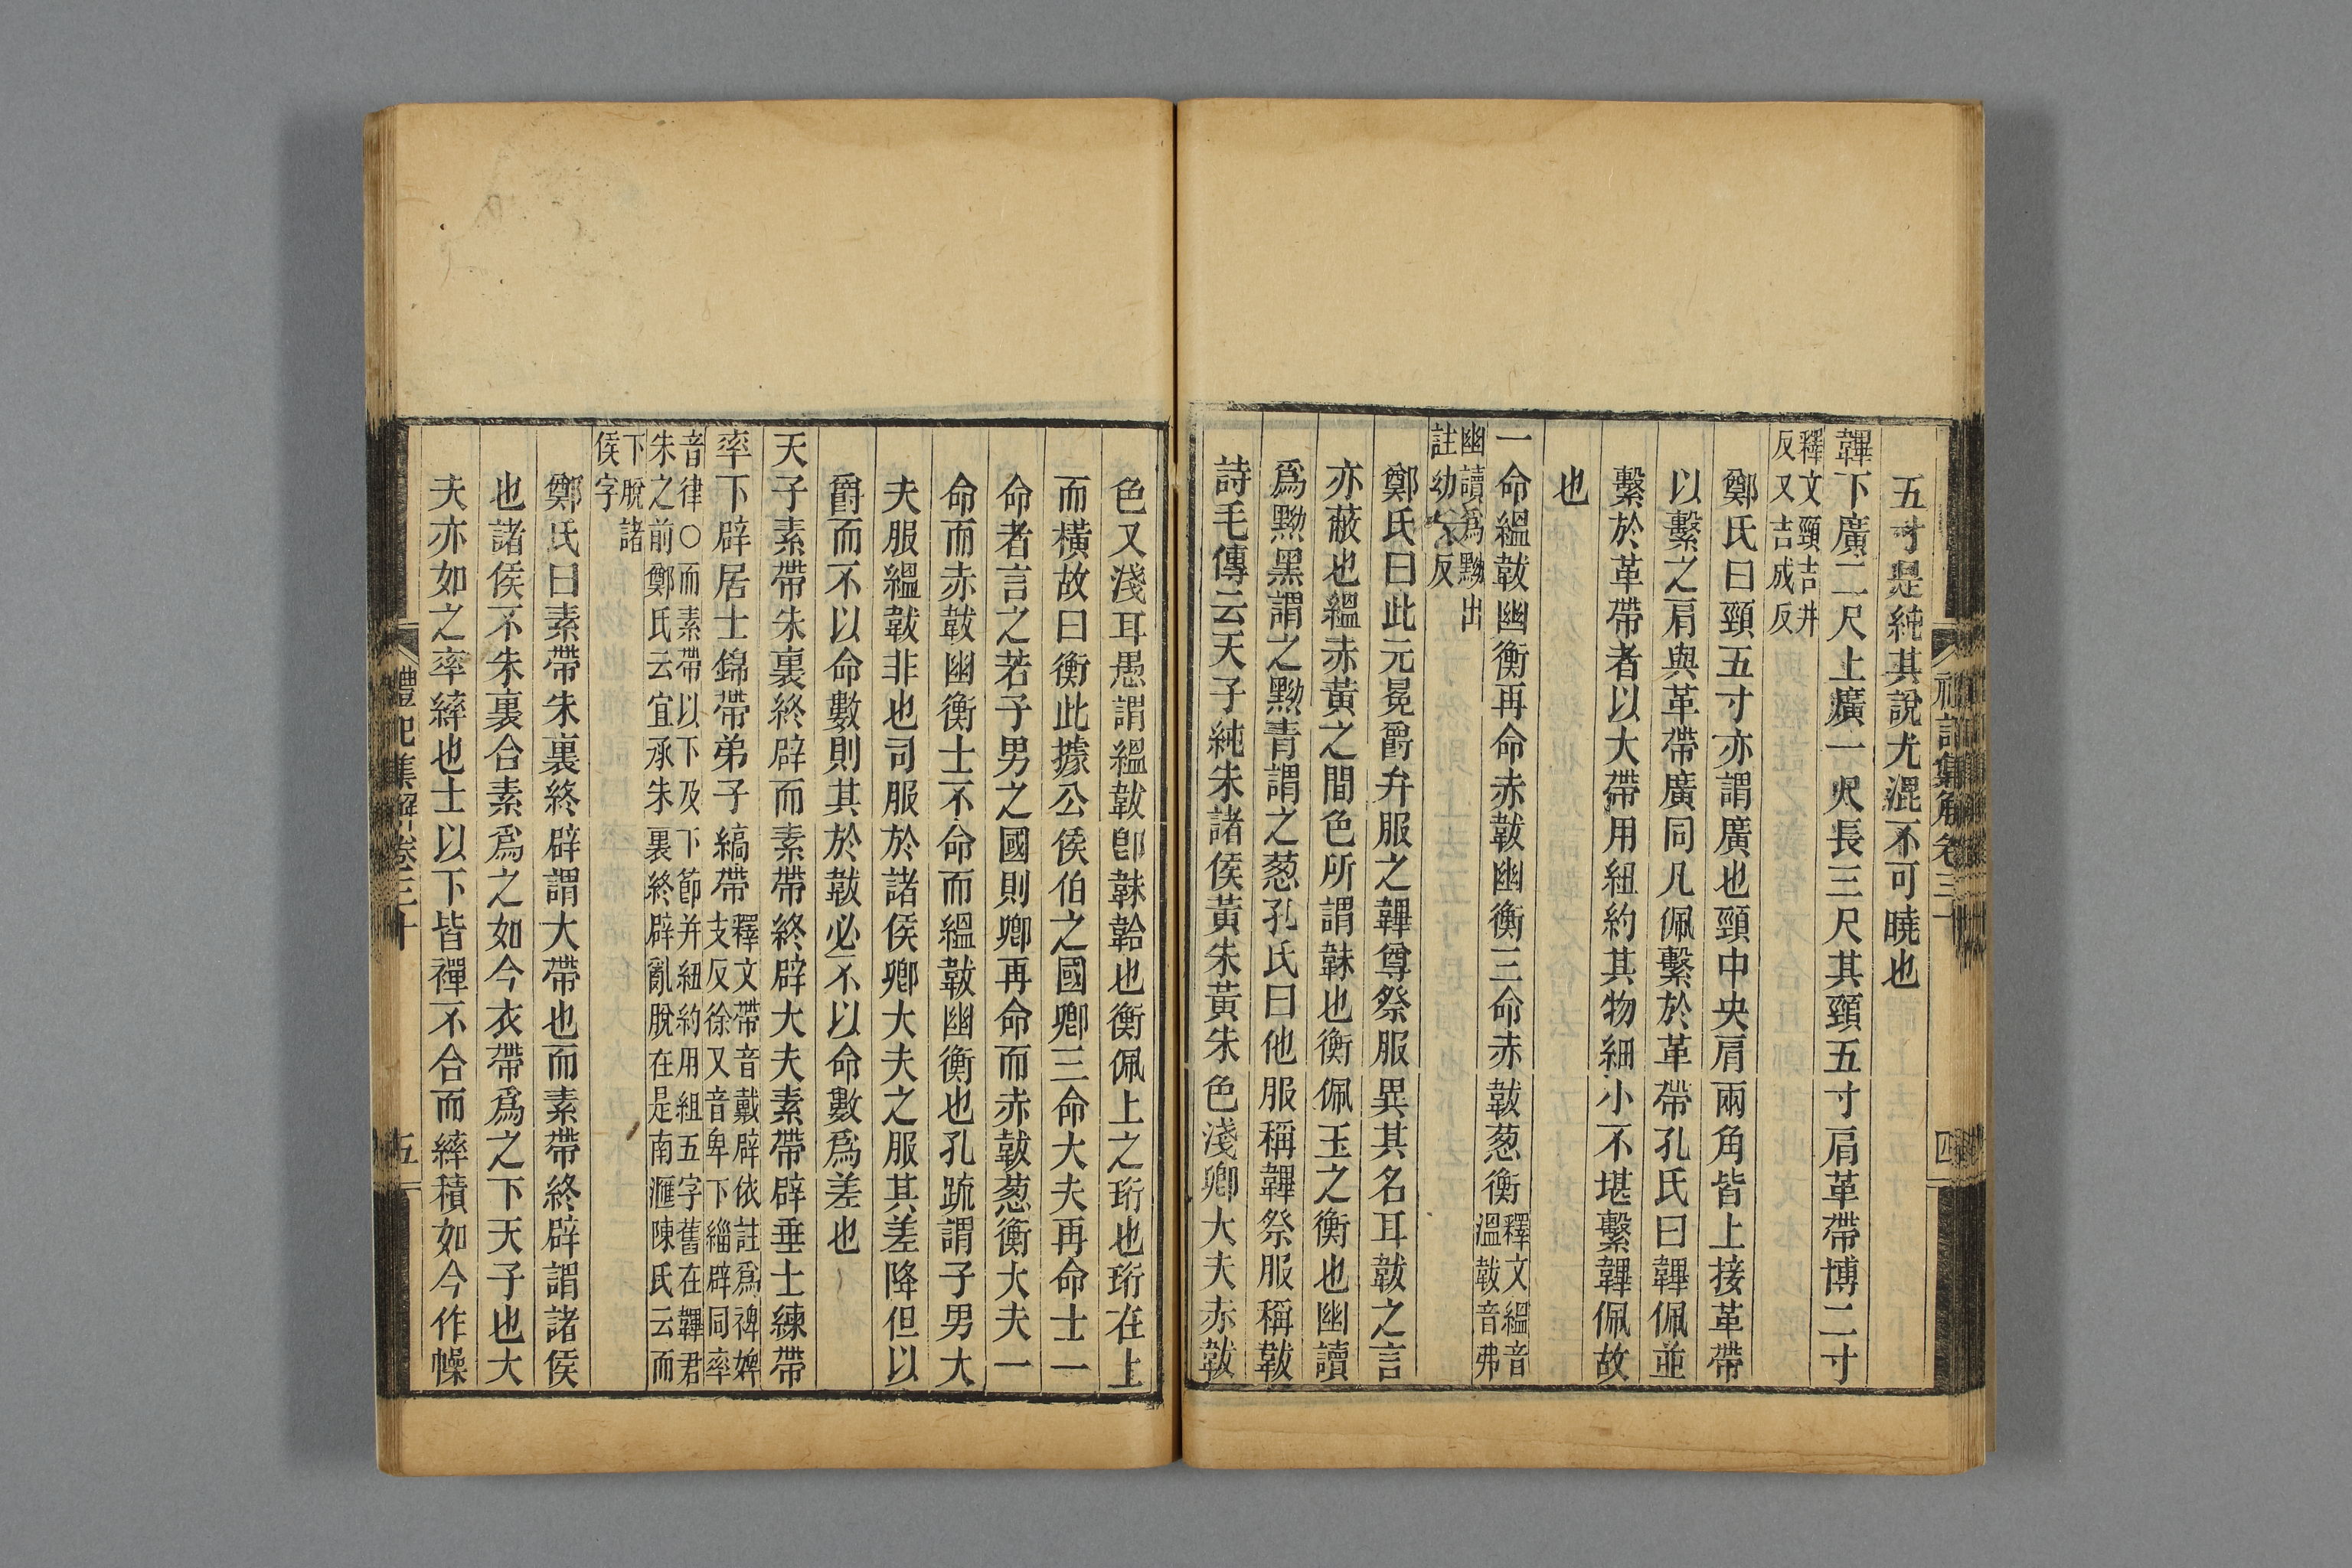 五寸是純其說尤混不可曉也
韠下廣二尺上廣一尺長三尺其頸五寸肩革帶博二寸
釋文頸吉井
反又吉成反
鄭氏曰頸五寸亦謂廣也頸中央肩兩角皆上接革帶
以繫之肩與革帶廣同凡佩繫於革帶孔氏曰韠佩並
繫於革帶者以大帶用紐約其物細小不堪繫韠佩故
也
一命縕韍幽衡再命赤韍幽衡三命赤韍葱衡釋文縕音
溫韍音弗
幽讀爲黝出
註幼糾反
鄭氏曰此元冕爵弁服之韠尊祭服異其名耳韍之言
亦蔽也縕赤黃之間色所謂韎也衡佩玉之衡也幽讀
爲黝黑謂之黝青謂之葱孔氏曰他服稱韠祭服稱韍
詩毛傳云天子純朱諸侯黃朱黃朱色淺卿大夫赤韍
色又淺耳愚謂縕韍卽韎韐也衡佩上之珩也珩在上
而橫故曰衡此據公侯伯之國卿三命大夫再命士一
命者言之若子男之國則卿再命而赤韍葱衡大夫一
命而赤韍幽衡士不命而縕韍幽衡也孔疏謂子男大
夫服縕韍非也司服於諸侯卿大夫之服其差降但以
爵而不以命數則其於韍必不以命數爲差也
天子素帶朱裏終辟而素帶終辟大夫素帶辟垂士練帶
率下辟居士錦帶弟子縞帶釋文帶音戴辟依註爲裨婢
支反徐又音卑下緇辟同率
音律○而素帶以下及下節并紐約用組五字舊在韠君
朱之前鄭氏云宜承朱裏終辟亂脫在是南滙陳氏云而
下脫諸
侯字
鄭氏曰素帶朱裏終辟謂大帶也而素帶終辟謂諸侯
也諸侯不朱裏合素爲之如今衣帶爲之下天子也大
夫亦如之率繂也士以下皆襌不合而繂積如今作幧
禮記集解卷三十
五